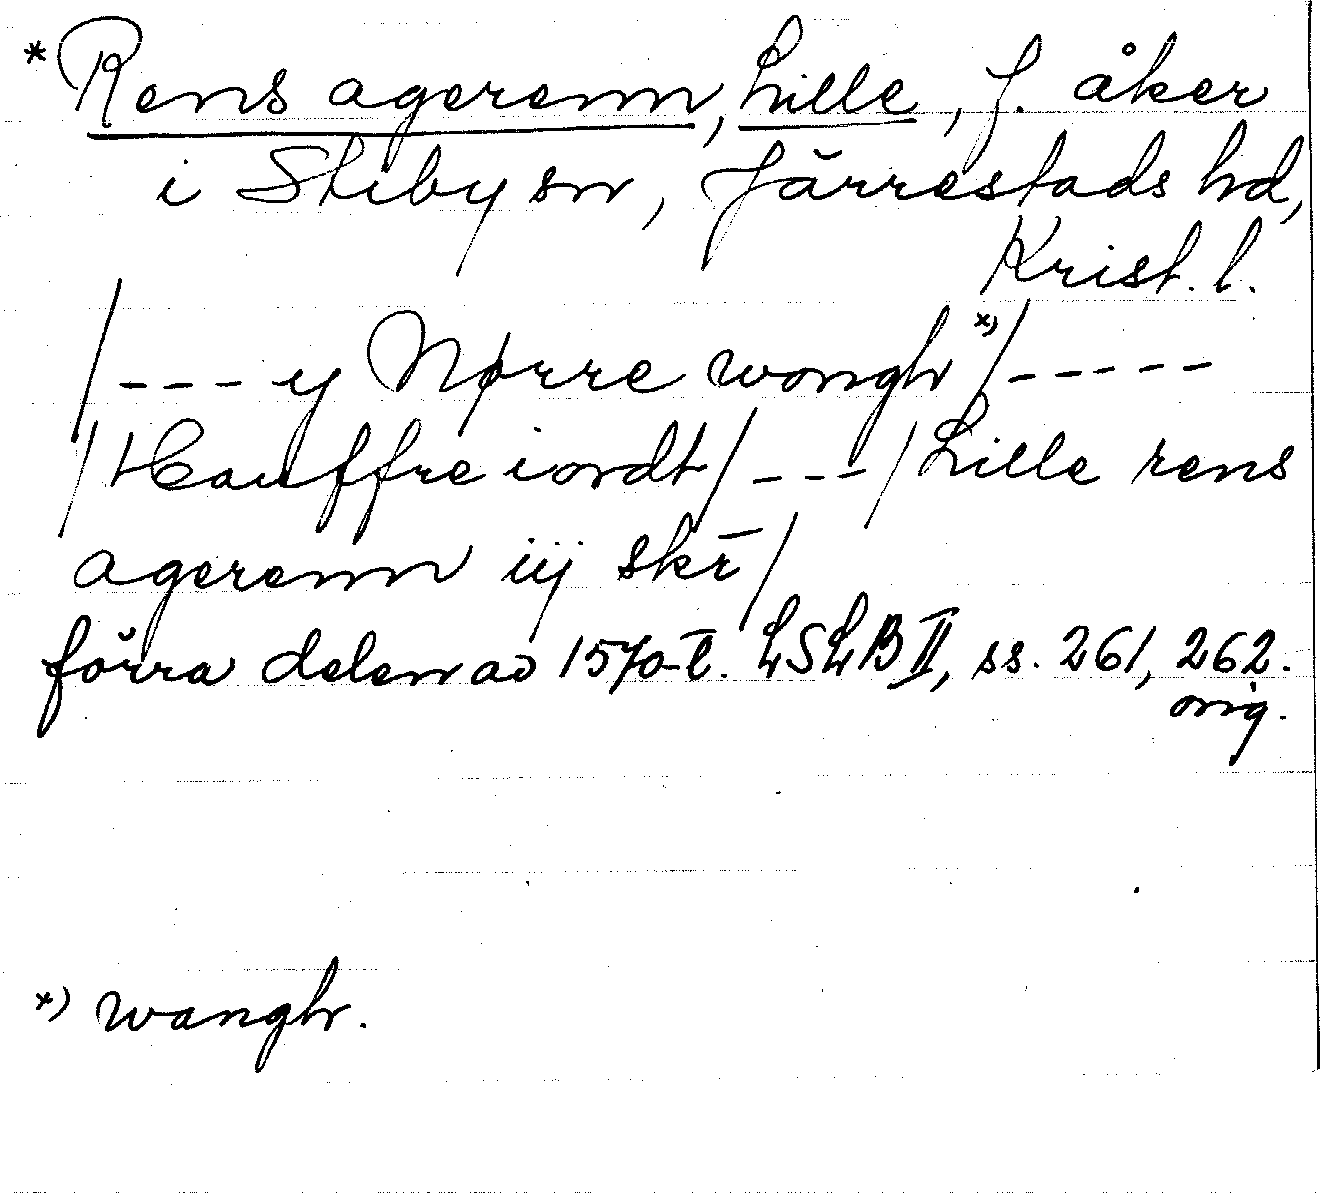 * Rens agerenn, Lille, f. åker
i Skiby sn, Järrestads hd,
Krist. l.
/--- y Nørre wongh *)/-----
/Hauffre iordt/---/Lille rens
agerenn iij skr̄/
förra delen av 1570-t. LSLB II, ss. 261, 262.
orig.
*) wangh.